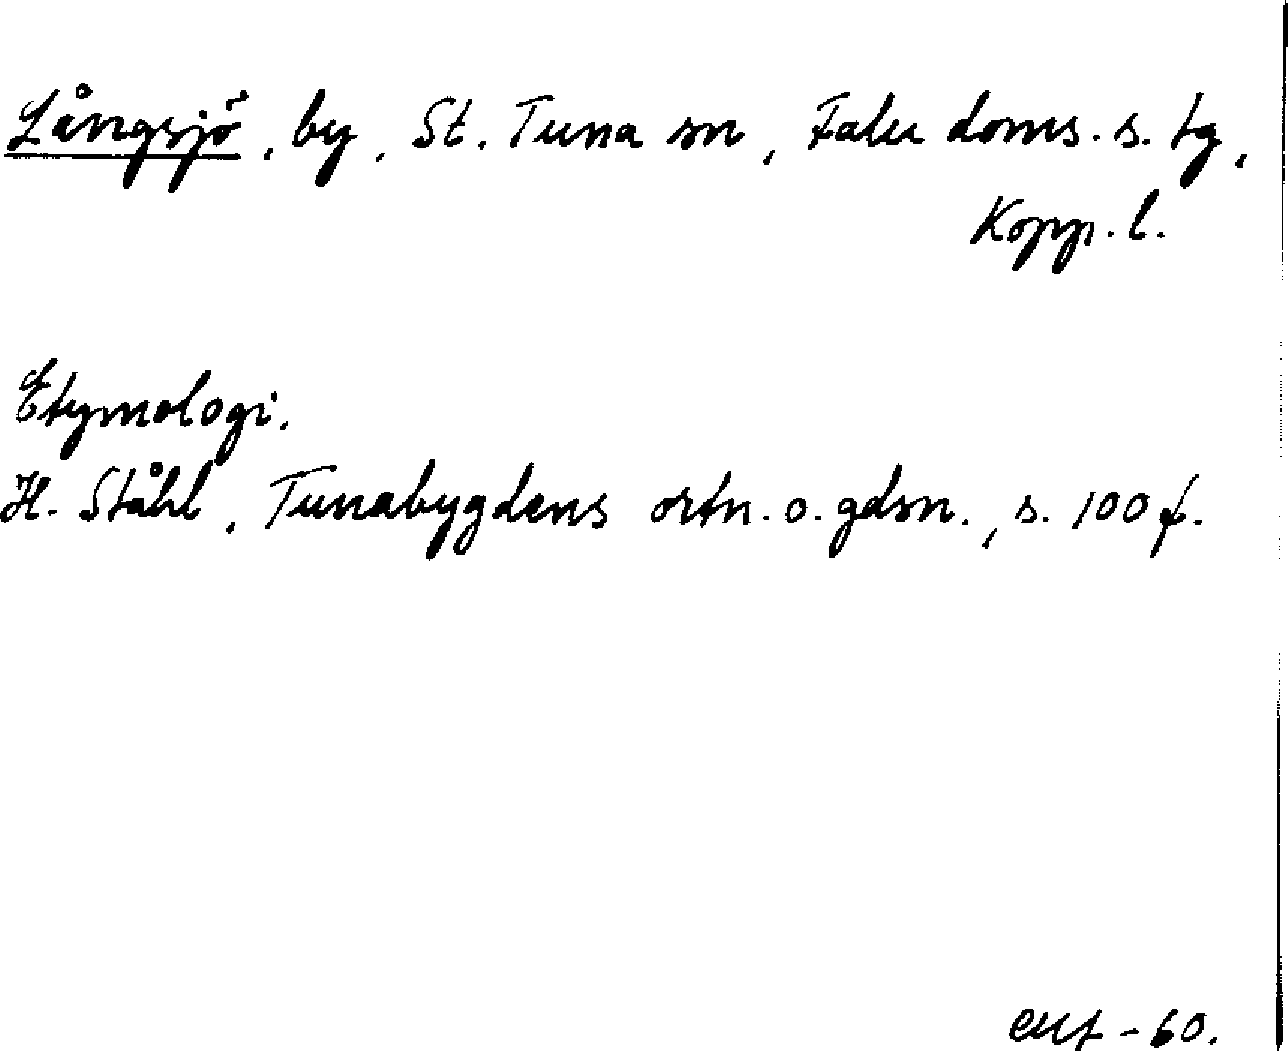 Långsjö, by, St. Tuna sn, Falu doms. s. tg,
Kopp. l.
Etymologi.
H. Ståhl, Tunabygdens ortn. o. gdsn., s. 100 f.
-60.